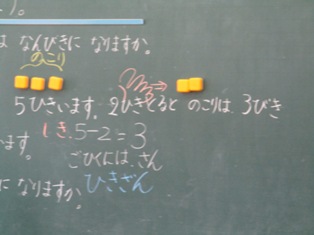 なんびきに なりますか。
のこり
5ひきいます。2ひきとると のこりは 3びき
しき 5-2=3
います。
ごひくには さん
に なりますか。
ひきざん